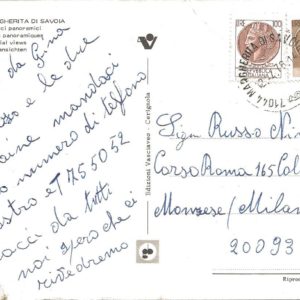 RGHERITA DI SAVOIA
ci panoramici
panoramiques
ial views
ansichten
da Gina
e le dice
mandaci
numero di
e T 755052
da tutti
noi spero che ci
rivedremo
Edizioni Vasciaveo - Cerignola
100
71044 MARGHERITA DI SAVOIA
Sign Russo Nin
Corso Roma 165 Col
Monzese / Milan
20093
Ripro